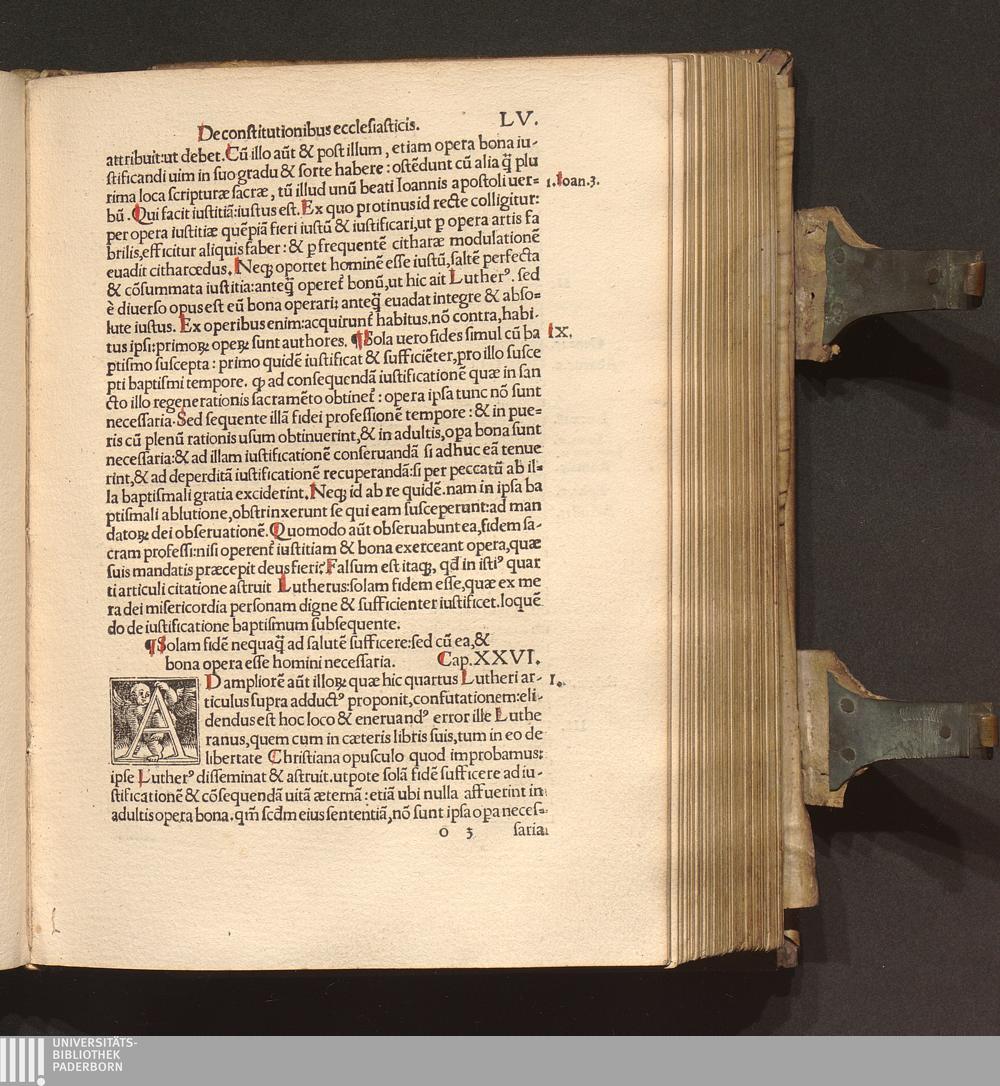 De constitutionibus ecclesiasticis. LV.
attribuit:ut debet. Cũ illo aũt & post illum, etiam opera bona iu-
stificandi uim in suo gradu & sorte habere: ostẽdunt cũ alia q̃ plu
rima loca scripturæ sacræ, tũ illud unũ beati Ioannis apostoli uer= 1. Ioan.3.
bũ. Qui facit iustitiã:iustus est. Ex quo protinus id recte colligitur:
per opera iustitiæ quẽpiã fieri iustũ & iustificari,ut ꝑ opera artis fa
brilis,efficitur aliquis faber: & ꝑ frequentẽ citharæ modulationẽ
euadit citharœdus. Neqꝫ oportet hominẽ esse iustũ,saltẽ perfecta
& cõsummata iustitia:anteq̃ operet᷑ bonũ,ut hic ait Lutherꝰ. sed
è diuerso opus est eũ bona operari: anteq̃ euadat integre & abso=
lute iustus. Ex operibus enim:acquirunt᷑ habitus.nõ contra,habi-
tus ipsi:primoꝝ opeꝝ sunt authores. ¶Sola uero fides simul cũ ba IX.
ptismo suscepta: primo quidẽ iustificat & sufficiẽter,pro illo susce
pti baptismi tempore. ꝙ ad consequendã iustificationẽ quæ in san
cto illo regenerationis sacramẽto obtinet᷑: opera ipsa tunc nõ sunt
necessaria. Sed sequente illã fidei professionẽ tempore: & in pue=
ris cũ plenũ rationis usum obtinuerint,& in adultis,oꝑa bona sunt
necessaria:& ad illam iustificationẽ conseruandã si adhuc eã tenue
rint,& ad deperditã iustificationẽ recuperandã:si per peccatũ ab il=
la baptismali gratia exciderint. Neqꝫ id ab re quidẽ.nam in ipsa ba
ptismali ablutione,obstrinxerunt se qui eam susceperunt:ad man
datoꝝ dei obseruationẽ. Quomodo aũt obseruabunt ea,fidem sa-
cram professi:nisi operent᷑ iustitiam & bona exerceant opera,quæ
suis mandatis præcepit deus fieri? Falsum est itaqꝫ, qđ in istiꝰ quar
ti articuli citatione astruit Lutherus:solam fidem esse,quæ ex me
ra dei misericordia personam digne & sufficienter iustificet.loquẽ
do de iustificatione baptismum subsequente.
¶Solam fidẽ nequaq̃ ad salutẽ sufficere:sed cũ ea,&
bona opera esse homini necessaria. Cap.XXVI.
AD ampliorẽ aũt illoꝝ quæ hic quartus Lutheri ar- I.
ticulus supra adductꝰ proponit,confutationem:eli-
dendus est hoc loco & eneruandꝰ error ille Luthe
ranus,quem cum in cæteris libris suis,tum in eo de
libertate Christiana opusculo quod improbamus:
ipse Lutherꝰ disseminat & astruit.utpote solã fidẽ sufficere ad iu-
stificationẽ & cõsequendã uitã æternã: etiã ubi nulla affuerint in
adultis opera bona. qm̃ scđm eius sententiã,nõ sunt ipsa oꝑa neces=
o 3 saria
UNIVERSITÄTS-
BIBLIOTHEK
PADERBORN